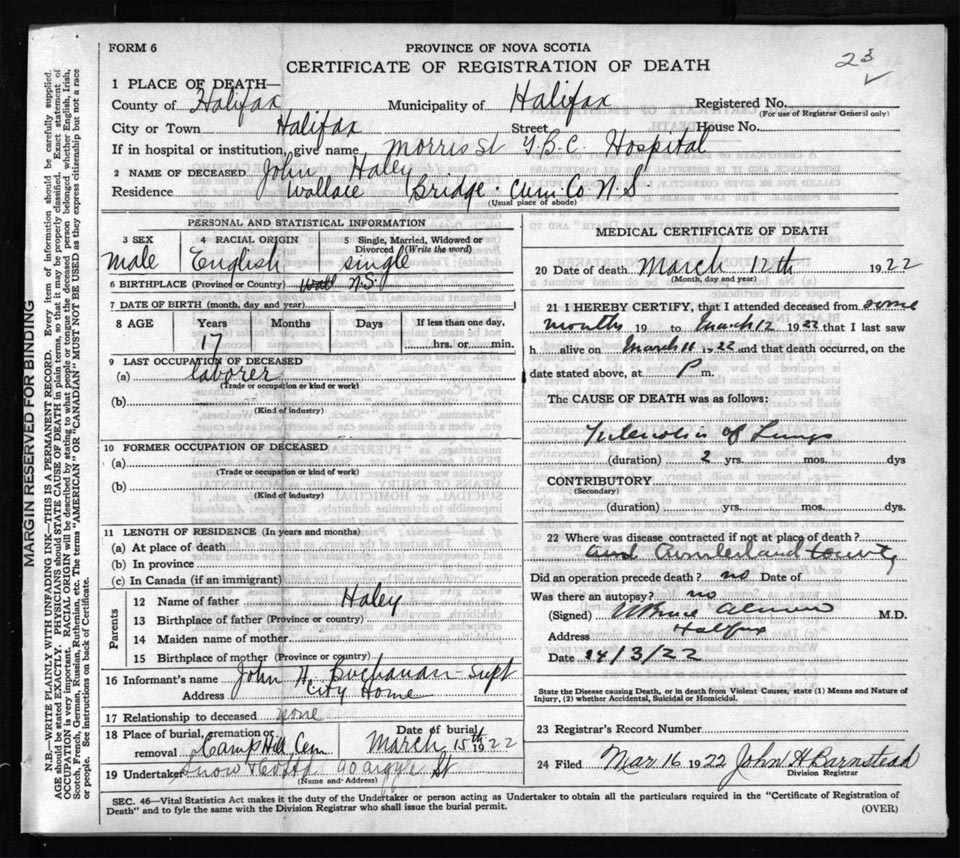 FORM 6
PROVINCE OF NOVA SCOTIA
CERTIFICATE OF REGISTRATION OF DEATH
23
1 PLACE OF DEATH—
County of Halifax Municipality of Halifax Registered No.
(For use of Registrar General only)
City or Town Halifax Street House No.
If in hospital or institution, give name Morris St T.B.C. Hospital
2 NAME OF DECEASED John Haley
Residence Wallace Bridge. Cum. Co N.S.
(Usual place of abode)
PERSONAL AND STATISTICAL INFORMATION
3 SEX 4 RACIAL ORIGIN 5 Single, Married, Widowed or Divorced (Write the word)
male English single
6 BIRTHPLACE (Province or Country) N.S.
7 DATE OF BIRTH (month, day and year)
8 AGE Years Months Days If less than one day,
17 hrs. or min.
9 LAST OCCUPATION OF DECEASED
(a) laborer
(Trade or occupation or kind or work)
(b)
(Kind of industry)
10 FORMER OCCUPATION OF DECEASED
(a)
(Trade or occupation or kind of work)
(b)
(Kind of industry)
11 LENGTH OF RESIDENCE (In years and months)
(a) At place of death
(b) In province
(c) In Canada (if an immigrant)
Parents
12 Name of father Haley
13 Birthplace of father (Province or country)
14 Maiden name of mother
15 Birthplace of mother (Province or country)
16 Informant's name John H. Buchanan - Supt
Address City Home
17 Relationship to deceased none
18 Place of burial, cremation or removal Camp Hill Cem
Date of burial
March 15th 1922
19 Undertaker Snow & Co 90 Argyle St
(Name and Address)
MEDICAL CERTIFICATE OF DEATH
20 Date of death March 12th 1922
(Month, day and year)
21 I HEREBY CERTIFY, that I attended deceased from some
months 19 to March 12 1922 that I last saw
h alive on March 11 1922 and that death occurred, on the
date stated above, at P m.
The CAUSE OF DEATH was as follows:
of Lungs
(duration) 2 yrs. mos. dys
CONTRIBUTORY
(Secondary)
(duration) yrs. mos. dys.
22 Where was disease contracted if not at place of death?
Cumberland County
Did an operation precede death? no Date of
Was there an autopsy? no
(Signed) W Bruce Almon M.D.
Address Halifax
Date 14/3/22
State the Disease causing Death, or in death from Violent Causes, state (1) Means and Nature of
Injury, (2) whether Accidental, Suicidal or Homicidal.
23 Registrar's Record Number
24 Filed Mar 16 1922 John H Barnstead
Division Registrar
SEC. 46—Vital Statistics Act makes it the duty of the Undertaker or person acting as Undertaker to obtain all the particulars required in the "Certificate of Registration of
Death" and to fyle the same with the Division Registrar who shall issue the burial permit.
(OVER)
MARGIN RESERVED FOR BINDING
N.B.—WRITE PLAINLY WITH UNFADING INK—THIS IS A PERMANENT RECORD. Every item of information should be carefully supplied.
AGE should be stated EXACTLY. PHYSICIANS should STATE CAUSE OF DEATH in plain terms, so that it may be properly classified. Exact statement of
OCCUPATION is very important. RACIAL ORIGIN will be described by stating to what people or tongue the deceased person belonged whether English, Irish,
Scotch, French, German, Russian, Ruthenian, etc. The terms "AMERICAN" or "CANADIAN" MUST NOT BE USED as they express citizenship but not a race
or people. See instructions on back of Certificate.